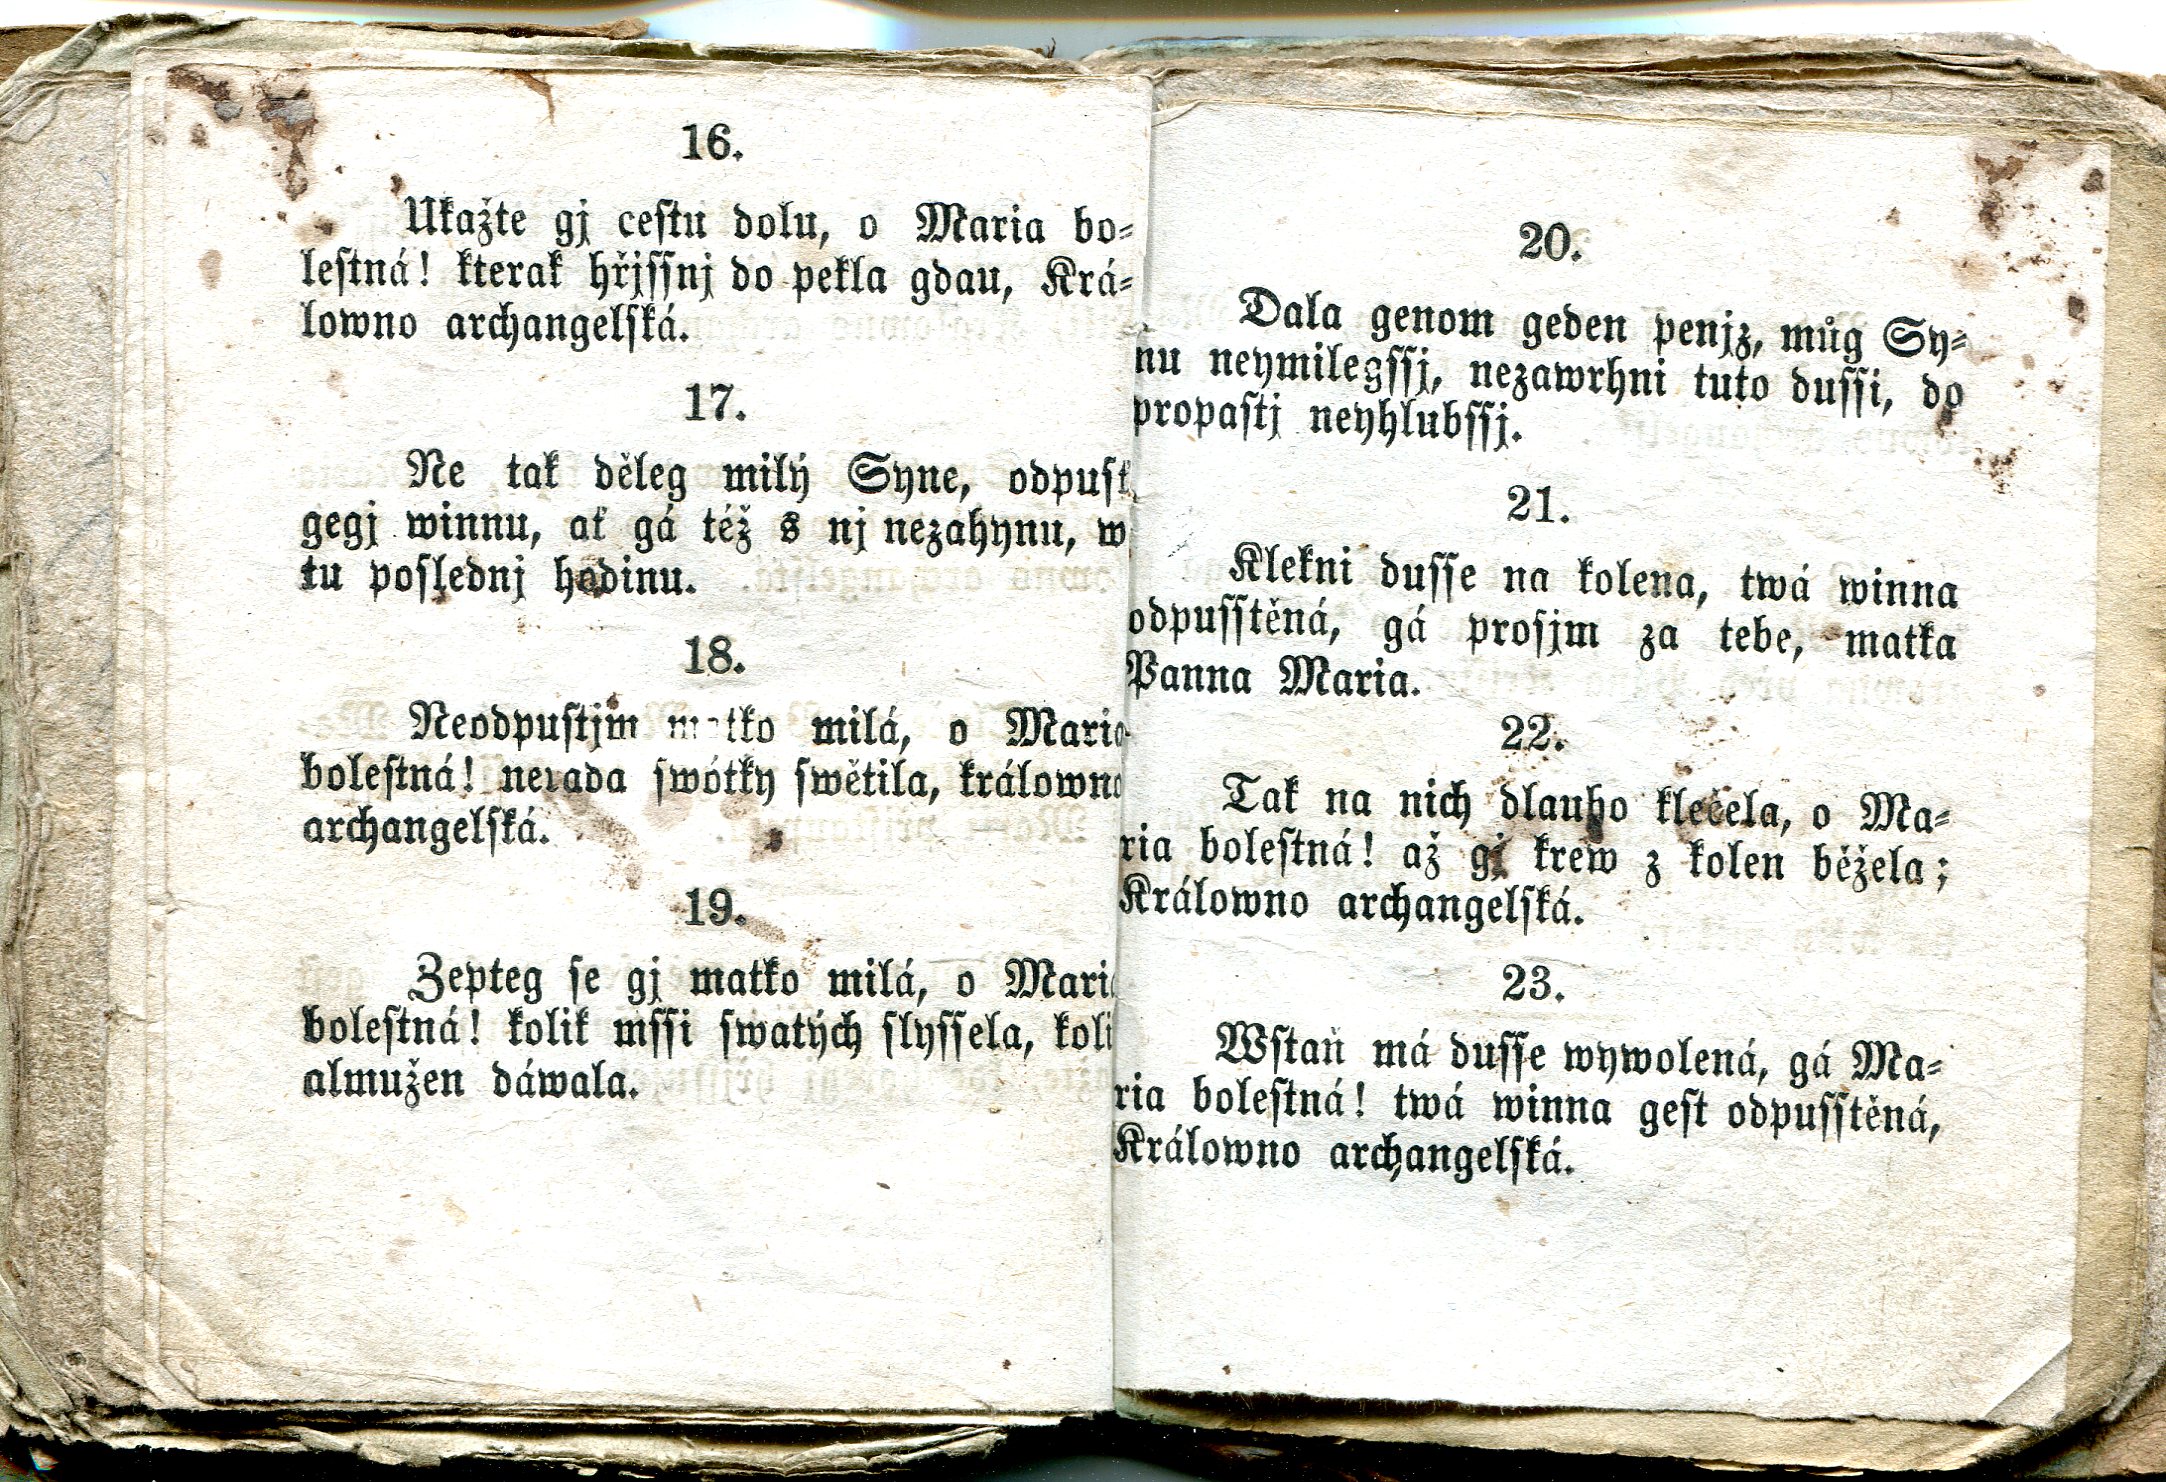 16.
Ukažte gj cestu dolu, o Maria bo-
lestná! kterak hřjssnj do pekla gdau, Krá-
lowno archangelská.
17.
Ne tak děleg milý Syne, odpusť
gegj winnu, ať gá též s nj nezahynu, w
tu poslednj hodinu.
18.
Neodpustjm matko milá, o Maria
bolestná! nerada swótky swětila, králowno
archangelská.
19.
Zepteg se gj matko milá, o Maria
bolestná! kolik mssi swatých slyssela, koli
almužen dáwala.
20.
Dala genom geden penjz, můg Sy-
nu neymilegssj, nezawrhni tuto dussi, do
propastj neyhlubssj.
21.
Klekni dusse na kolena, twá winna
odpusstěná, gá prosjm za tebe, matka
Panna Maria.
22.
Tak na nich dlauho klečela, o Ma-
ria bolestná! až gj krew z kolen běžela;
Králowno archangelská.
23.
Wstaň má dusse wywolená, gá Ma-
ria bolestná! twá winna gest odpusstěná,
Králowno archangelská.